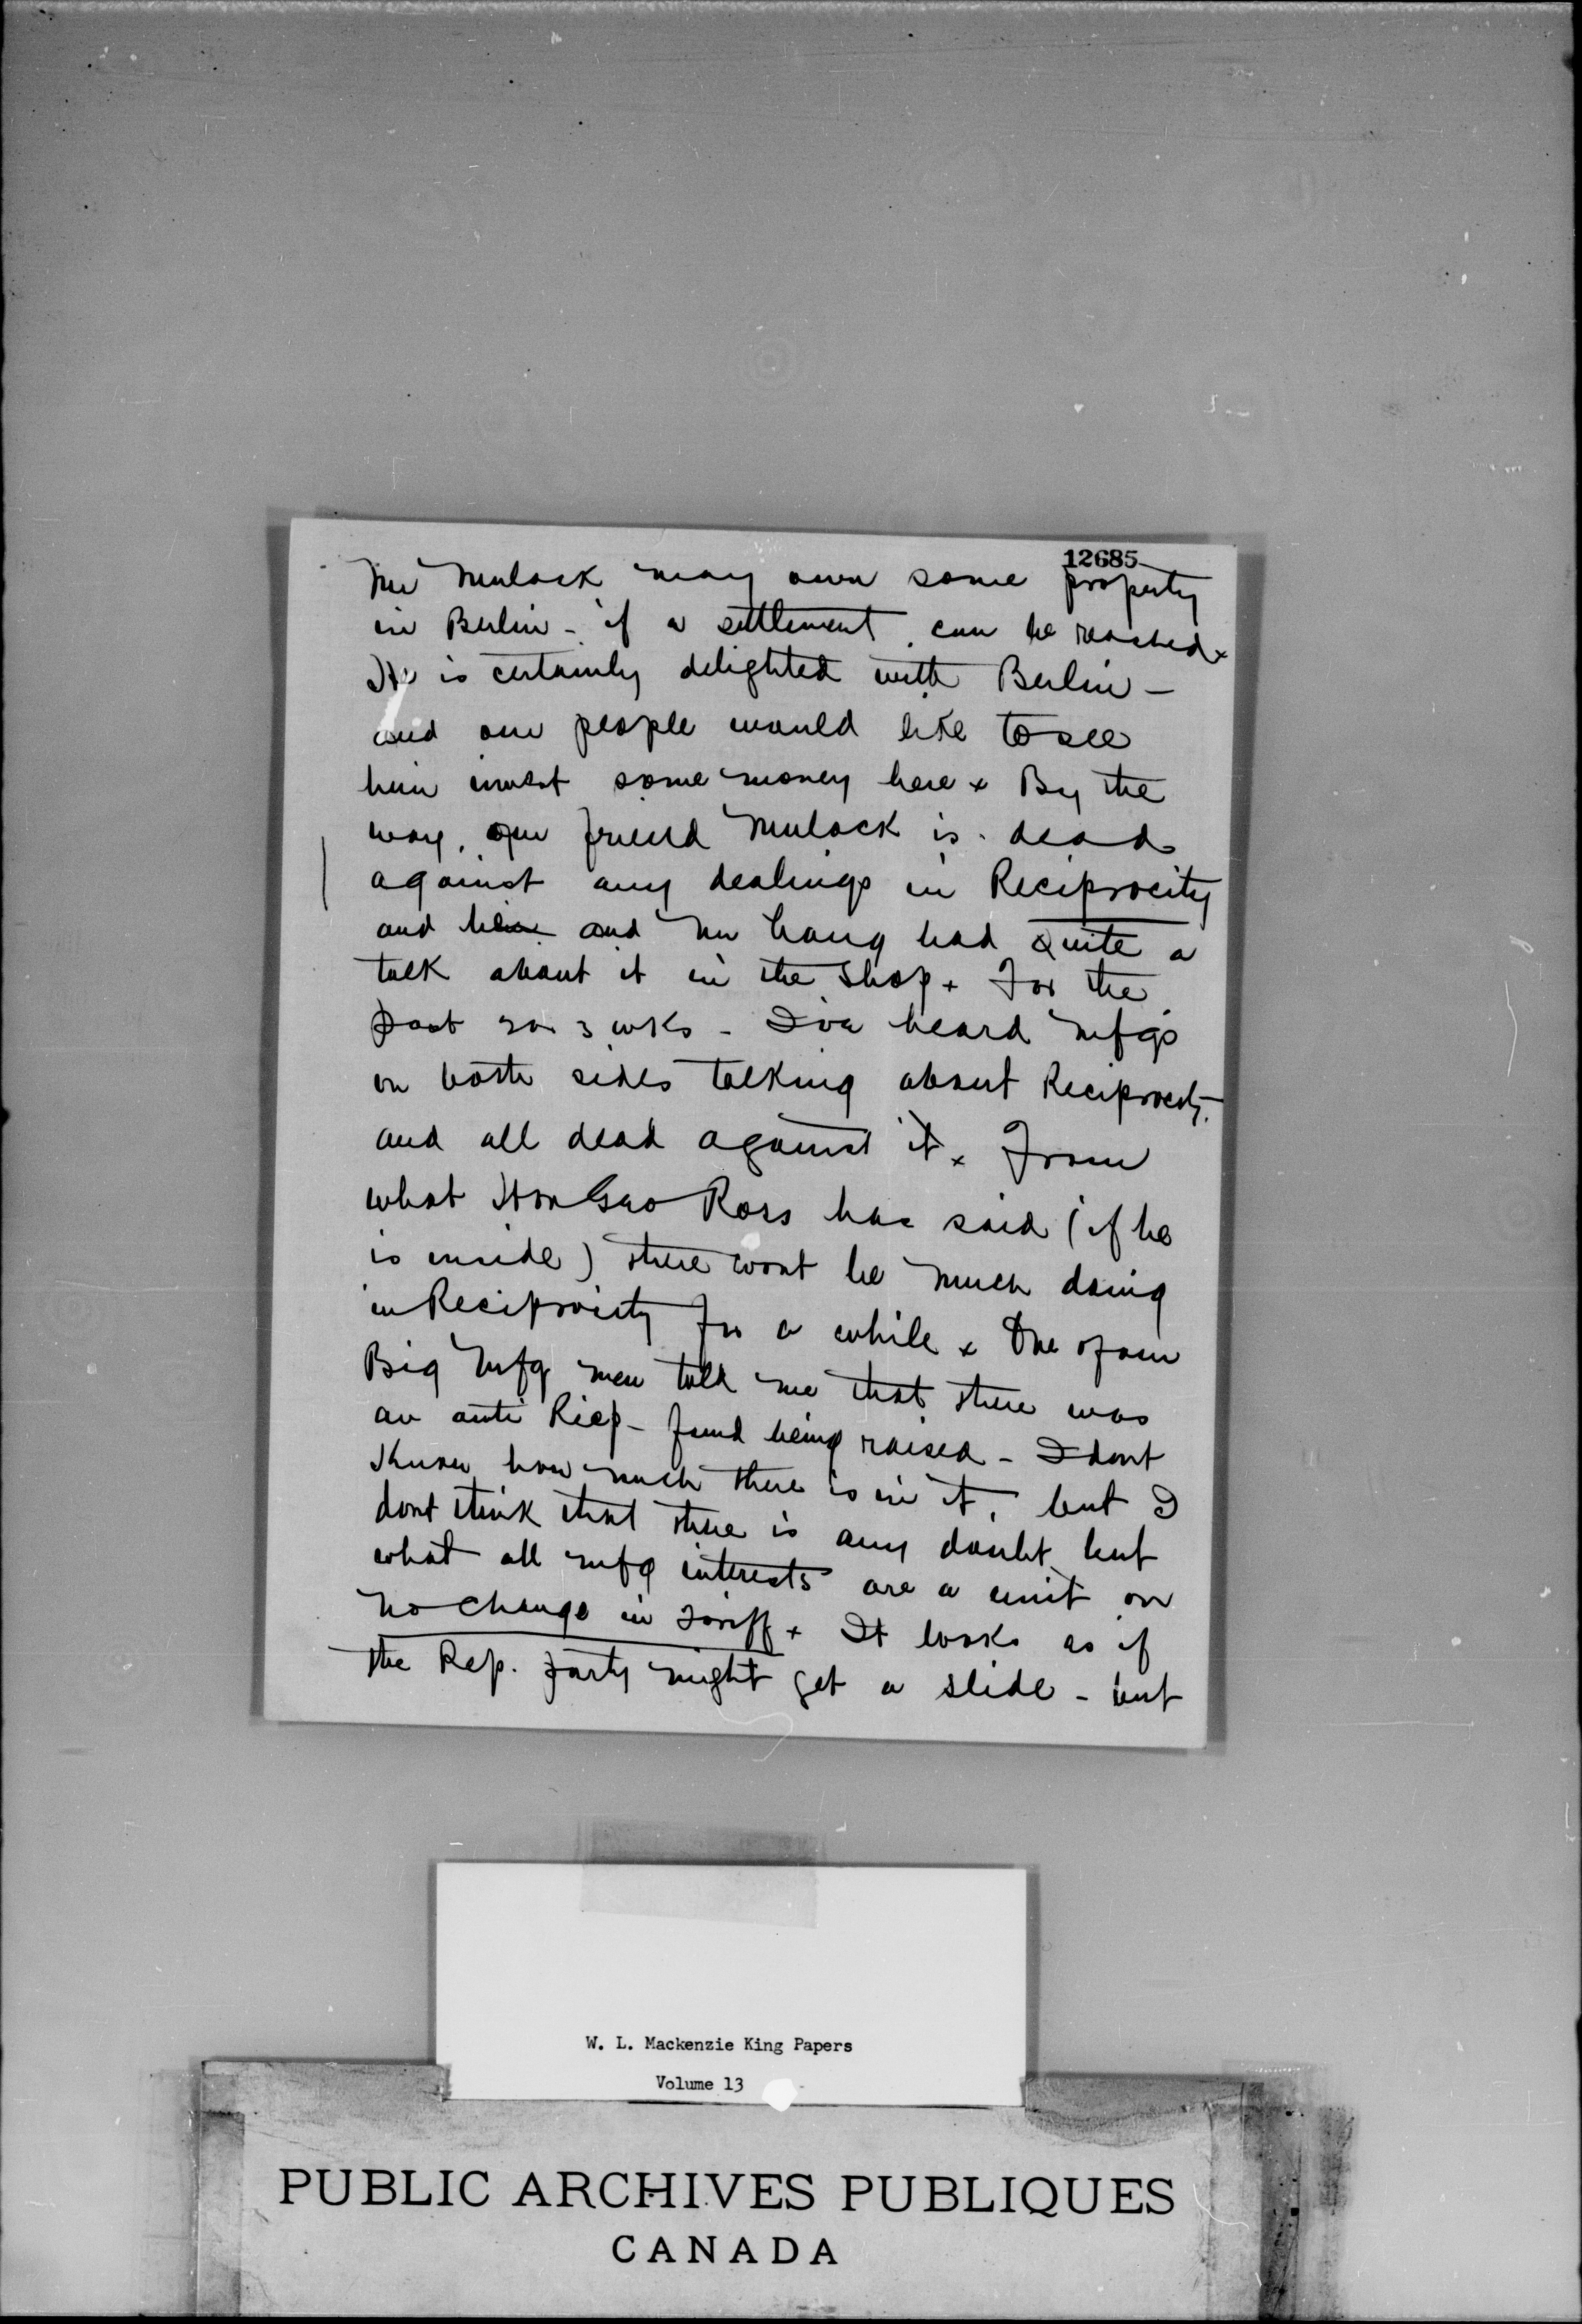 12685
Mr Mulock may own some property
in Berlin - if a settlement can be reached x
He is certainly delighted with Berlin -
and our people would like to see
him invest some money here x By the
way, our friend Mulock is dead
against any dealings in Reciprocity
and and Mr Lang had quite a
talk about it in the Shop x For the
past 2 or 3 wks - I've heard mfgs
on both sides talking about Reciprocity
and all dead against it x From
what Hon Geo Ross has said (if he
is inside) there wont be much doing
in Reciprocity for a while x One of our
Big mfg men told me that there was
an anti Recip - fund being raised - I dont
know how much there is in it, but I
dont think that there is any doubt but
what all mfg interests are a unit on
no change in Tariff x It looks as if
the Rep. party might get a slide - but
W. L. Mackenzie King Papers
Volume 13
PUBLIC ARCHIVES PUBLIQUES
CANADA